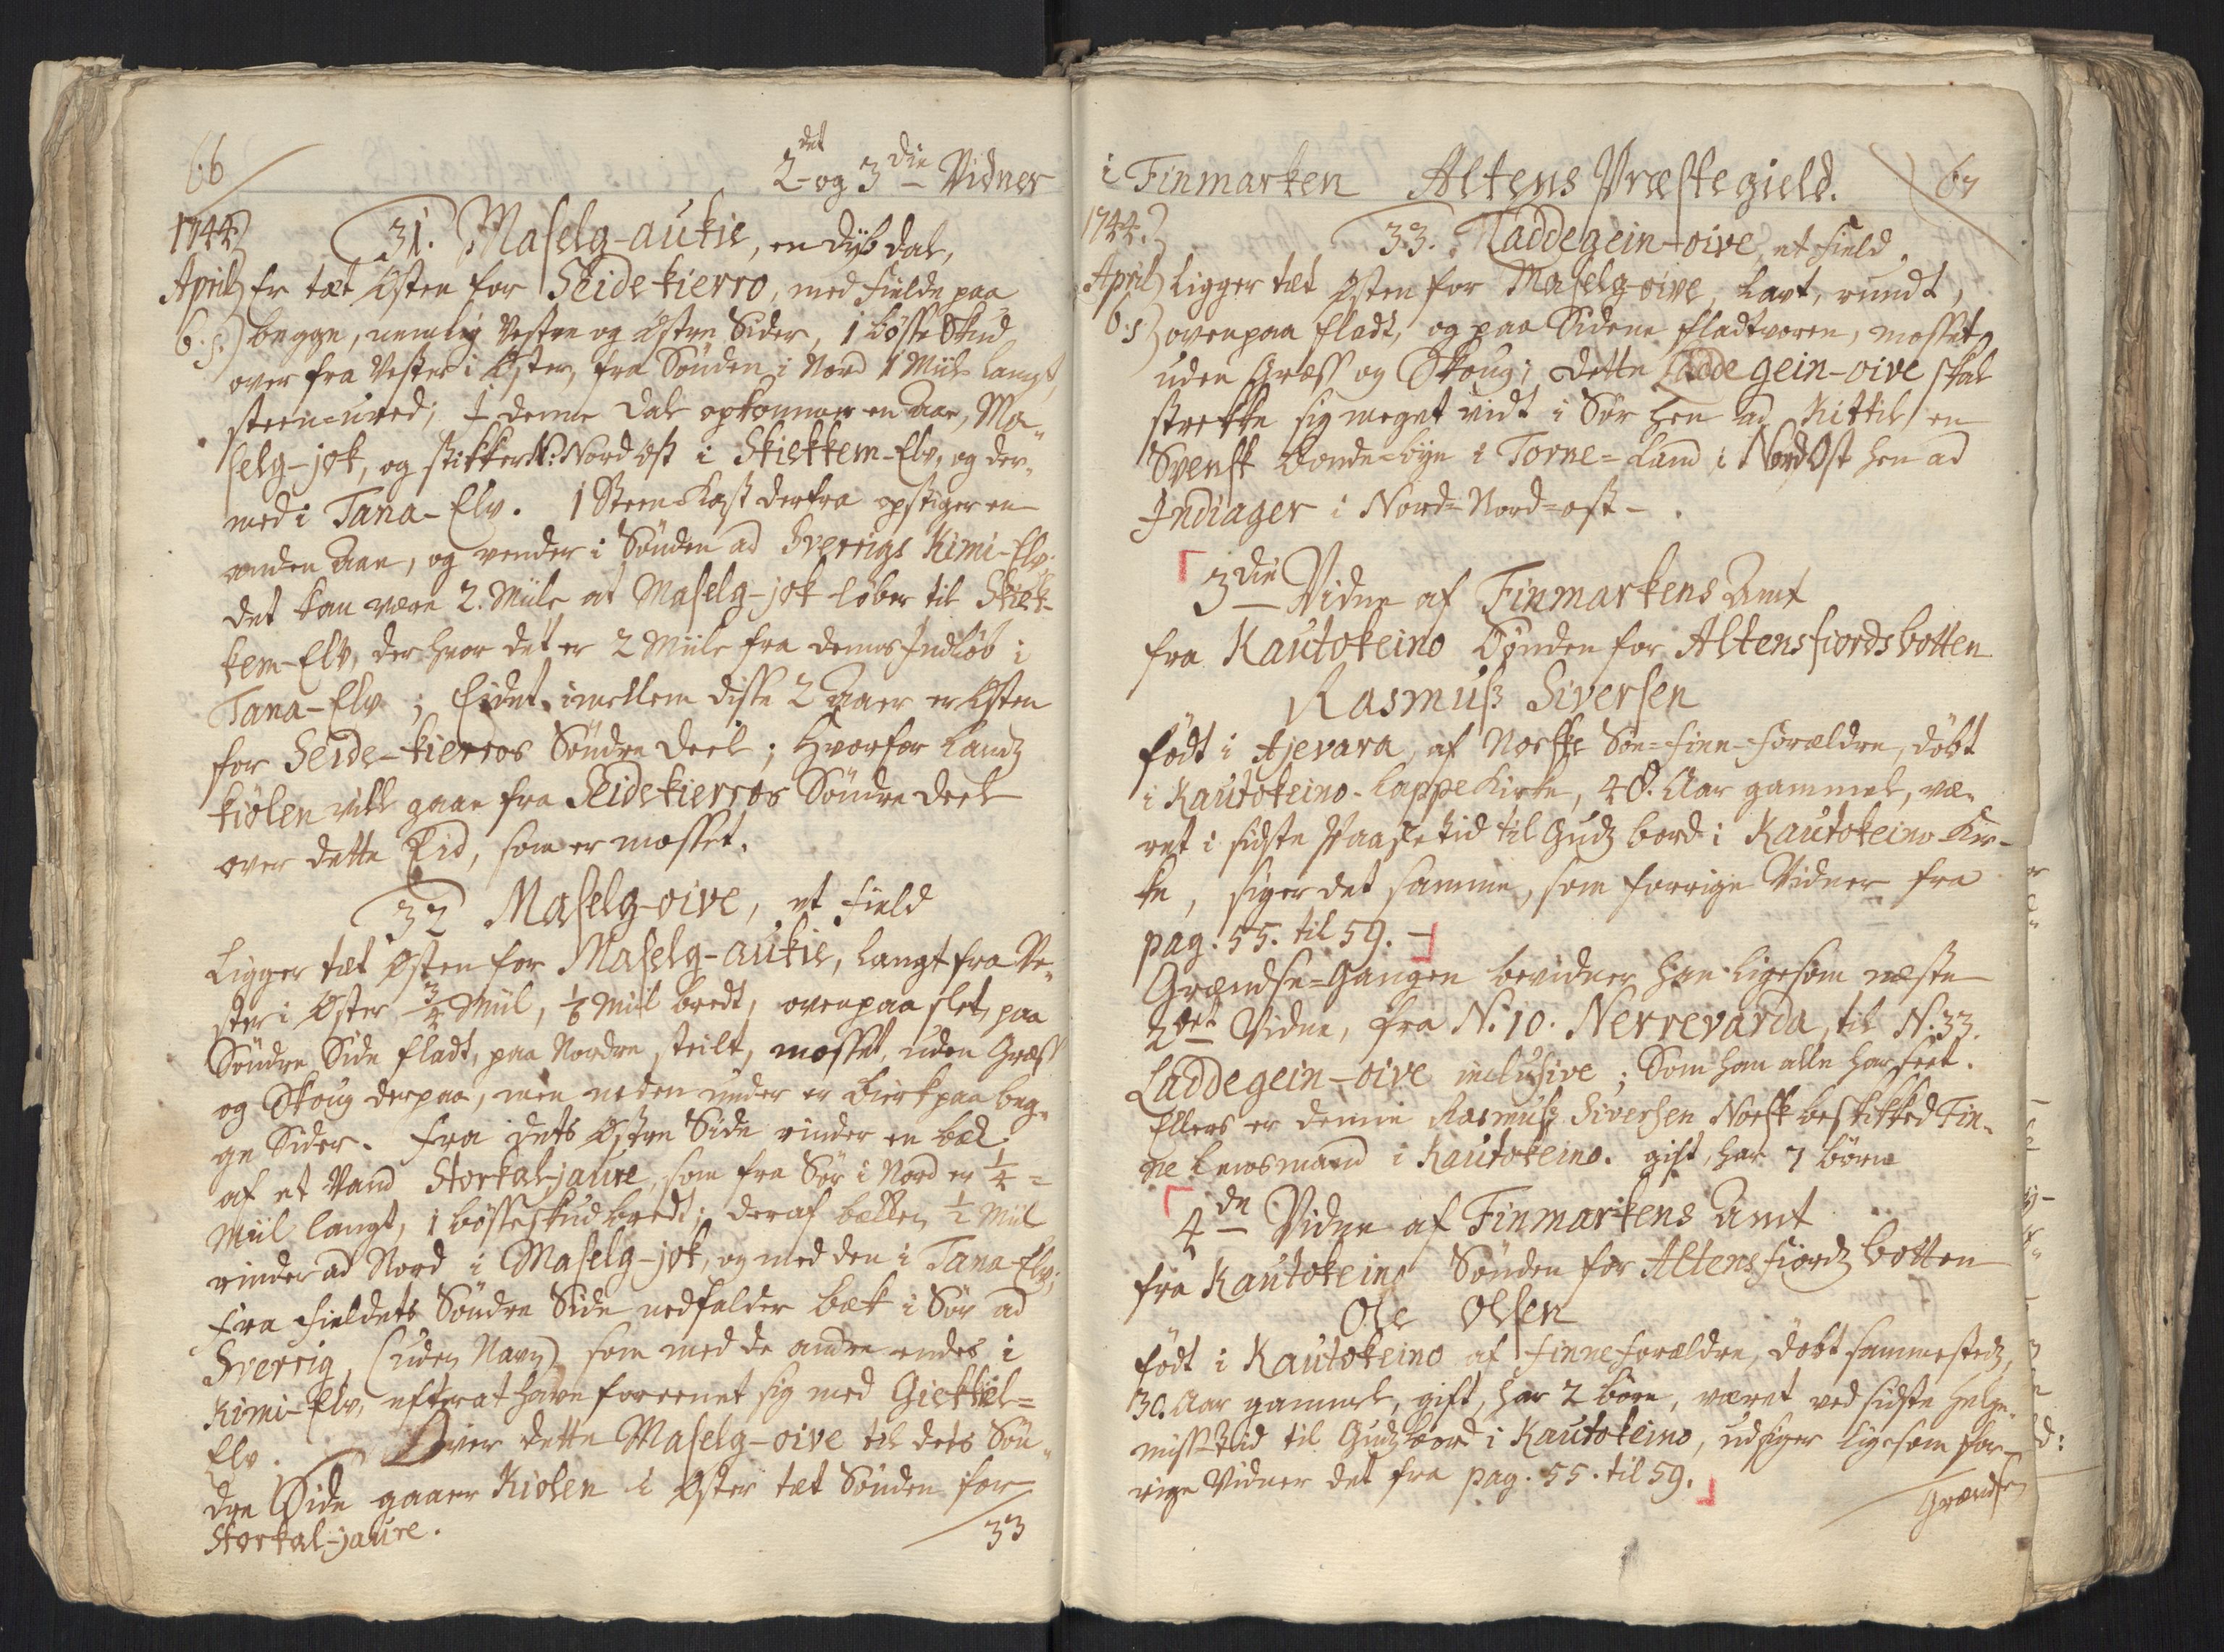 66
2det og 3die Vidner
1744.
31. Maselg-aukie, en dyb dal,
April
Er tæt Østen for Seidekierro, med Fielde paa
6. s.
begge, nemlig Vestre og Østre Sider, 1 bösse Skud
over fra Vester i Øster, fra Sönden i Nord 1 Miil langt,
steen-uured; I denne dal opkommer en Aae, Ma-
selg-jok, og stikker N: Nordost i Skiekkem-Elv, og der-
med i Tana-Elv. 1 Steen-Kast derfra opstiger en
anden Aae, og vender i Sönden ad Sverrigs Kimi-Elv.
det kan være 2. Miile at Maselg-jok löber til Skiek-
kem-Elv, der hvor det er 2 Miile fra dennes Indlöb i
Tana-Elv; Eidet imellem disse 2 Aaer er Østen
for Seide-kierros Söndre deel; Hvorfor Landz
kiölen vill gaae fra Seidekierros Söndre deel
over dette Eid, som er mosset.
32 Maselg-oive, et Field
Ligger tæt Østen for Maselg-aukie, langt fra Ve-
ster i Øster 3/4 Miil, 1/8 Miil bredt, ovenpaa slet, paa
Söndre Side fladt, paa Nordre steilt, mosset, uden Græss
og Skoug derpaa, men neden under er Birk paa beg-
ge Sider. Fra dets Østre Side rinder en bæk
af et Vand Storkal-jaure, som fra Sör i Nord er 1/4 =
Miil langt, 1 bösseskud bredt; deraf bækken 1/2 Miil
rinder ad Nord i Maselg-jok, og med den i Tana-Elv;
Fra Fieldets Söndre Side nedfalder bæk i Sör ad
Sverrig, (uden Navn) som med de andre endes i
Kimi-Elv, efter at have foreenet sig med Giekkel=
Elv. Over dette Maselg-oive til dets Sön-
dre Side gaaer Kiölen i Øster tæt Sönden for
Storkal-jaure.
33
i Finmarken Altens Præstegield.
67
1744.
33. Laddegein-oive et Field.
April
Ligger tæt Østen for Maselg-oive, lavt, rundt,
6. s.
ovenpaa fladt, og paa Siderne fladtvoren, mosset,
uden Græss og Skoug; dette Laddegein-oive skal
strekke sig meget vidt i Sör hen ad Kittil en
Svensk Bonde-bye i Torne=Land, i NordOst hen ad
Indiager i Nord=Nord=ost.
3die Vidne af Finmarkens Amt
fra Kautokeino Sönden for Altensfiordsbotten
Rasmus Siversen
födt i Ajevara, af Norske Söe=Finn-Forældre, döbt
i Kautokeino-Lappe Kirke, 48. Aar gammel, væ-
ret i sidste Paaske tid til Gudz bord i Kautokeino-Kir-
ke, siger det samme, som forrige Vidner fra
pag. 55. til 59.
Grændse=Gangen bevidner han ligesom næste
2det Vidne, fra N. 10. Nerrevarda, til N. 33.
Laddegein-oive inclusive; Som han alle har seet.
Ellers er denne Rasmus Siversen Norsk beskikked Fin-
ne Lensmand i Kautokeino. gift, har 7 börn
4de Vidne af Finmarkens Amt
fra Kautokeino Sönden for Altens fiordz botten
Ole Olsen
födt i Kautokeino af Finne forældre, döbt sammestedz,
30. Aar gammel, gift, har 2 börn, været ved sidste Helge-
miss-tid til Gudz bord i Kautokeino, udsiger ligesom for-
rige Vidner det fra pag. 55. til 59.
Grændse